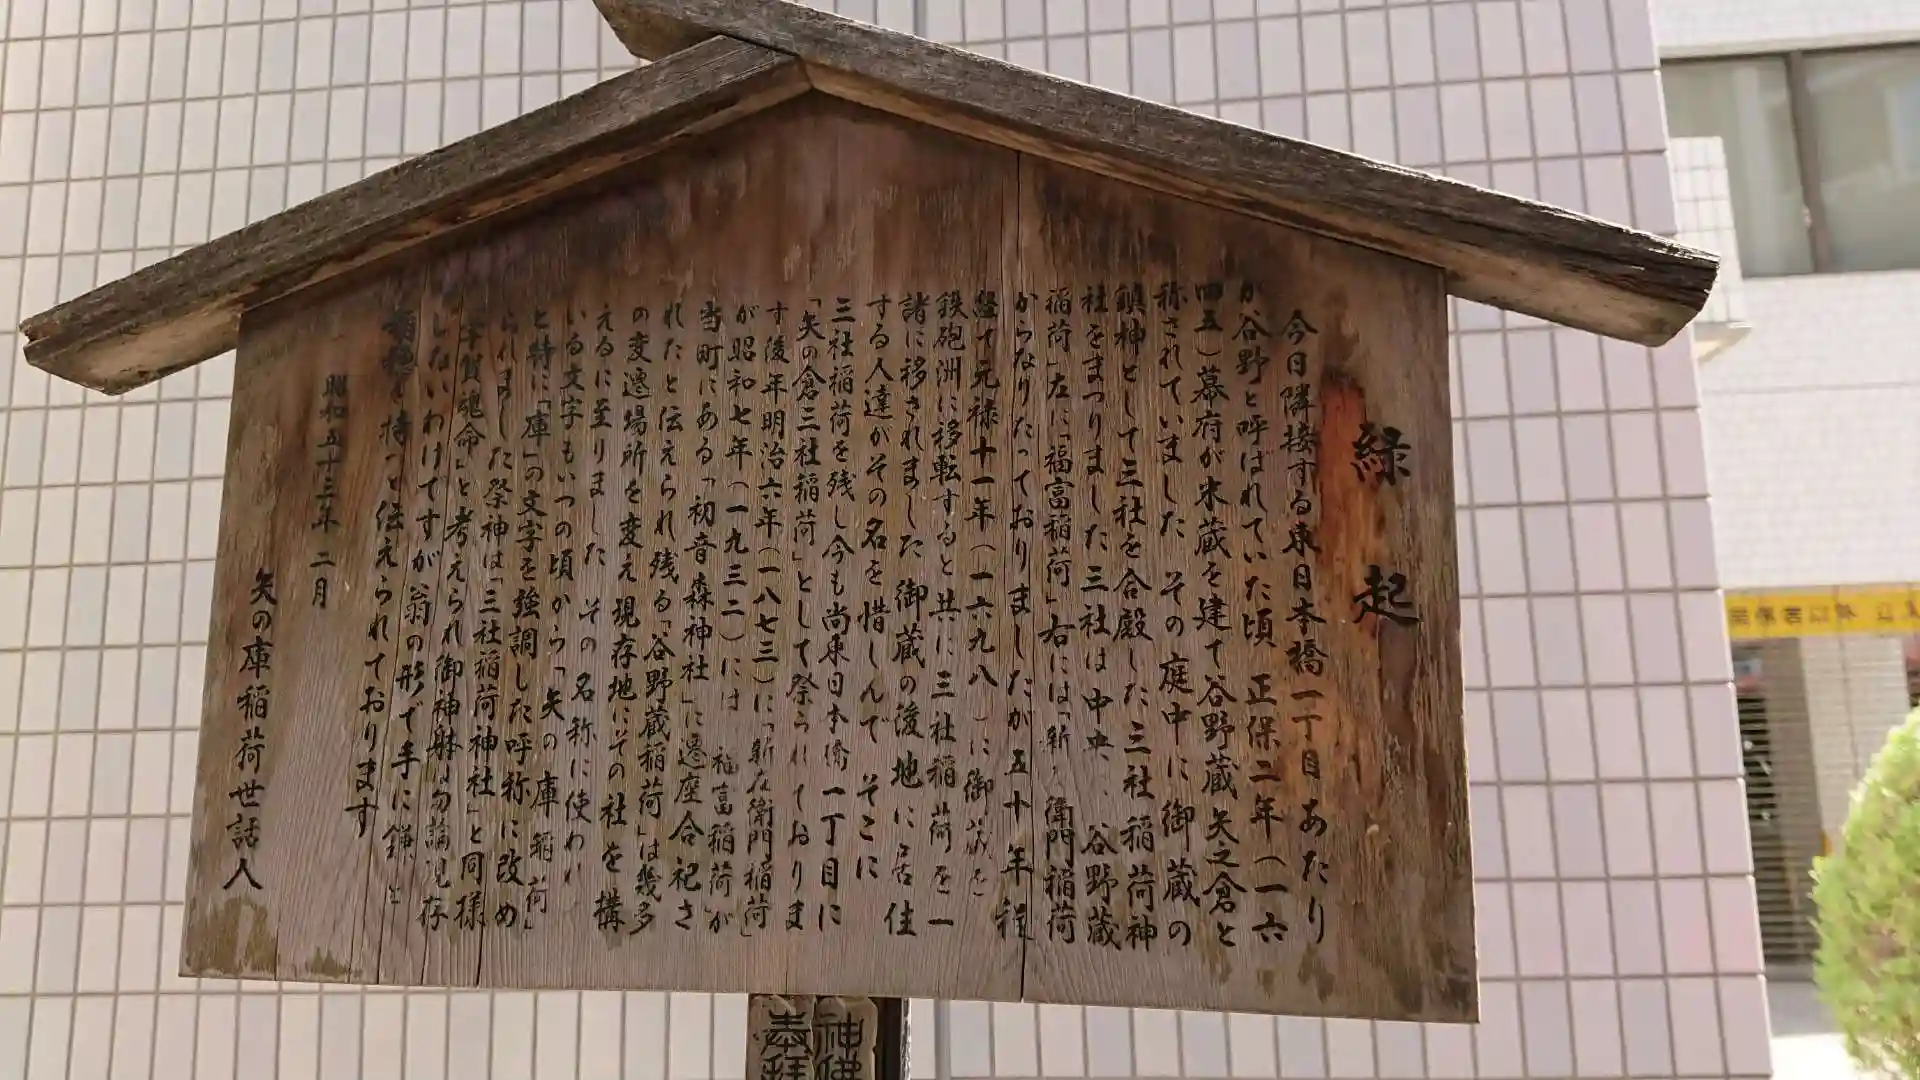 縁起
今日隣接する東日本橋一丁目あたり
が谷野と呼ばれていた頃 正保二年(一六
四五)幕府が米蔵を建て谷野蔵矢之倉と
称されていました その庭中に御蔵の
鎮神として三社を合殿した三社稲荷神
社をまつりました三社は中央に 谷野蔵
稲荷」左に「福富稲荷」右には「新 衛門稲荷
からなりたっておりましたが五十年程
経て元禄十一年(一六九八)に御蔵を
鉄砲洲に移転すると共に三社稲荷を一
諸に移されました御蔵の後地に居住
する人達がその名を惜しんで そこに
三社稲荷を残し今も尚東日本橋一丁目に
「矢の倉三社稲荷」として祭られておりま
す後年明治六年(一八七三)に「新左衛門稲荷」
が昭和七年(一九三二)には 福富稲荷」が
当町にある「初音森神社」に遷座合祀さ
れたと伝えられ残る「谷野蔵稲荷」は幾多
の変遷場所を変え現存地にその社を構
えるに至りました その名称に使われ
いる文字もいつの頃から「矢の庫稲荷」
と特に「庫」の文字を強調した呼称に改め
られました祭神は「三社稲荷神社」と同様
賀魂命」と考えられ御神躰は勿論現存
しないわけですが翁の形で手に鎌と
稲穂を持つと伝えられております
昭和五十三年 二月
矢の庫稲荷世話人
神佛
奉拜